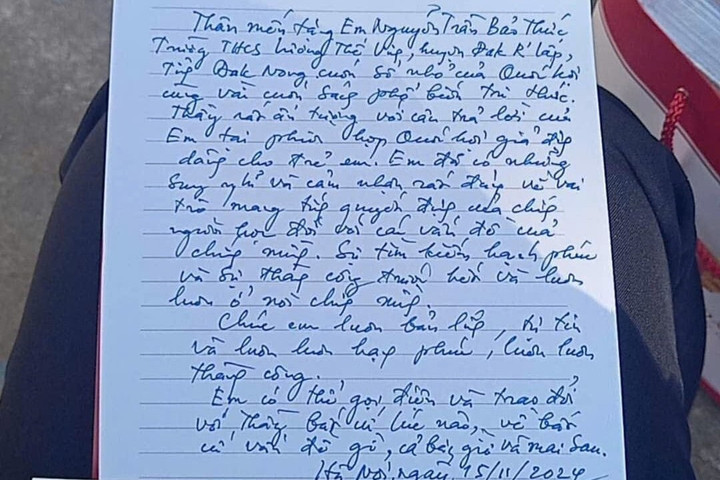 Thân mến tặng Em Nguyễn Trần Bảo Thúc
Trường THCS Lương Thế Vinh, huyện Đak R'Lấp,
Tỉnh Đak Nong cuốn sổ nhỏ của Quốc hội
cùng vài cuốn sách phổ biến tri thức.
Thầy rất ấn tượng với câu trả lời của
Em tại phiên họp Quốc hội giả định
dành cho trẻ em. Em đã có những
suy nghĩ và cảm nhận rất đúng về vai
trò mang tính quyết định của chính
người học đối với các vấn đề của
chính mình. Sự tìm kiếm hạnh phúc
và sự thành công trước hết và luôn
luôn ở nơi chính mình.
Chúc em luôn bản lĩnh, tự tin
và luôn luôn hạnh phúc, luôn luôn
thành công.
Em có thể gọi điện và trao đổi
với Thầy bất cứ lúc nào, về bất
cứ vấn đề gì, cả bây giờ và mai sau.
Hà Nội, ngày 15/11/2024